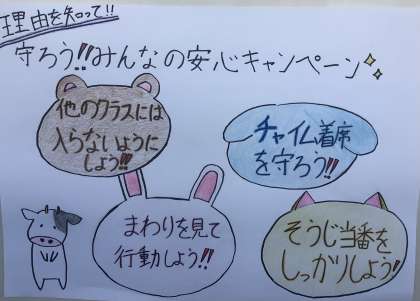 理由を知って!!
守ろう!!みんなの安心キャンペーン
他のクラスには
入らないように
しよう!!
チャイム着席
を守ろう!!
まわりを見て
行動しよう!!
そうじ当番を
しっかりしよう!